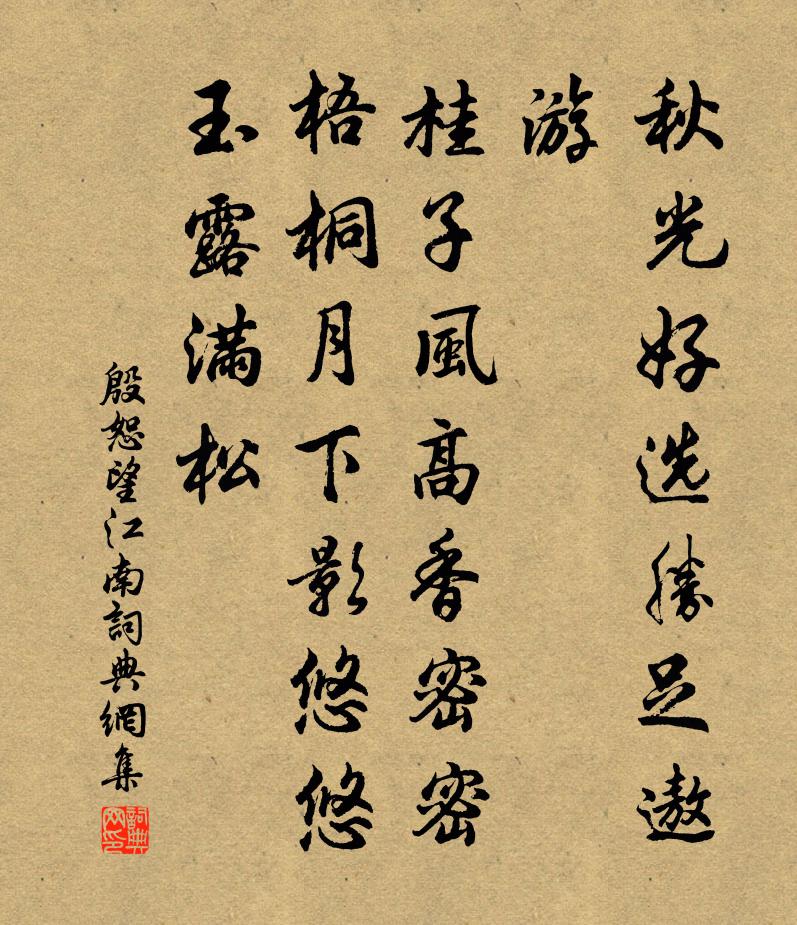 秋光好选勝足遨
游
桂子風高香密密
梧桐月下影悠悠
玉露满松
殷恕望江南詞典網集
詞典网印